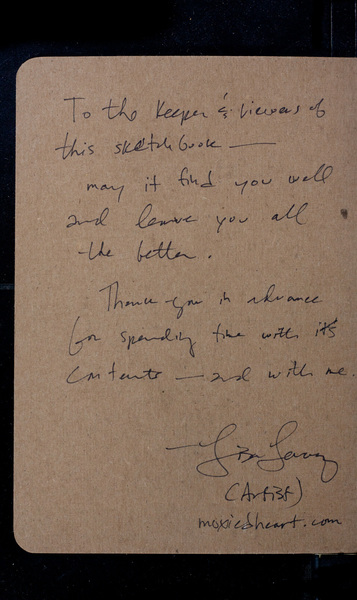 To the keeper & viewers of
this sketchbook —
may it find you well
and leave you all
the better.
Thank you in advance
for spending time with its
contents — and with me.
— Lisa
(Artist)
moxiedheart.com